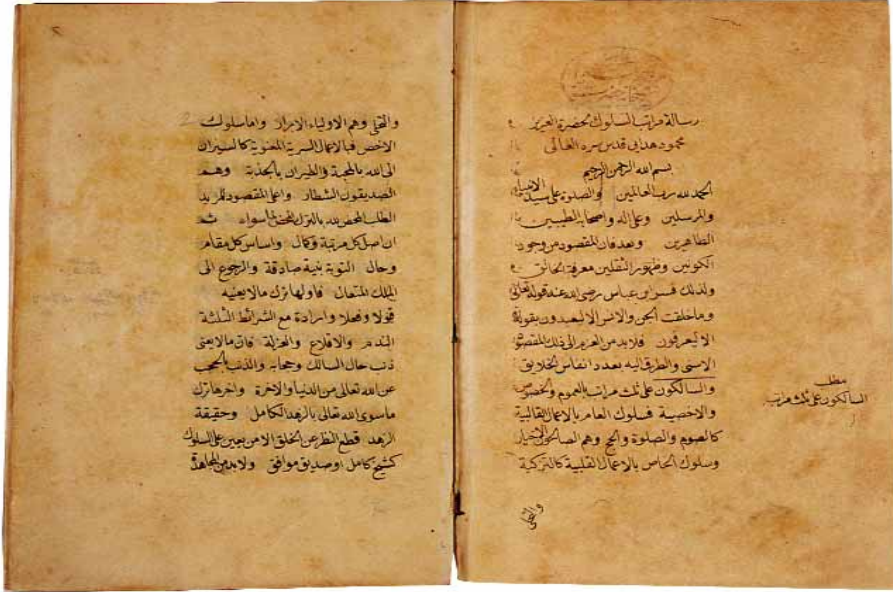 رسالة مراتب السلوك لحضرة العزيز
محمود هدايى قدس سره العالى
بسم الله الرحمن الرحيم
الحمد لله رب العالمين والصلوة على سيد الانبياء
والمرسلين وعلى اله واصحابه الطيبين
الطاهرين وبعد فان المقصود من وجود
الكونين وظهور الثقلين معرفة الخالق
ولذلك فسر ابن عباس رضى الله عنه قوله تعالى
وما خلقت الجن والانس الا ليعبدون بقوله
الا ليعرفون فلا بد من العزم الى ذلك المقصود
الاسنى والطرق اليه بعدد انفاس الخلايق
والسالكون على ثلث مراتب بالعموم والخصوص
والاخصية فسلوك العام بالاعمال القالبية
كالصوم والصلوة والحج وهم الصالحون الاخيار
وسلوك الخاص بالاعمال القلبية كالتزكية
والتحلى
مطلب
السالكون على ثلث مراتب
والتحلى وهم الاولياء الابرار واما سلوك
الاخص فبالاعمال السرية المعنوية كالسيران
الى الله بالمحبة والطيران بالجذبة وهم
الصديقون الشطار واعلى المقصود للمريد
الطلب المحض لله بالترك المحض لما سواه ثم
ان اصل كل مرتبة وكمال واساس كل مقام
وحال التوبة بنية صادقة والرجوع الى
الملك المتعال فاولها ترك ما لا يعنيه
قولا وفعلا وارادة مع الشرائط الثلثة
الندم والاقلاع والعزلة فان ما لا يعنى
ذنب حال السالك وحجابه والذنب ما يحجب
عن الله تعالى من الدنيا والاخرة واخرها ترك
ما سوى الله تعالى بالزهد الكامل وحقيقة
الزهد قطع النظر عن الخلق الا من يعين على السلوك
كشيخ كامل او صديق موافق ولا بد من المجاهدة